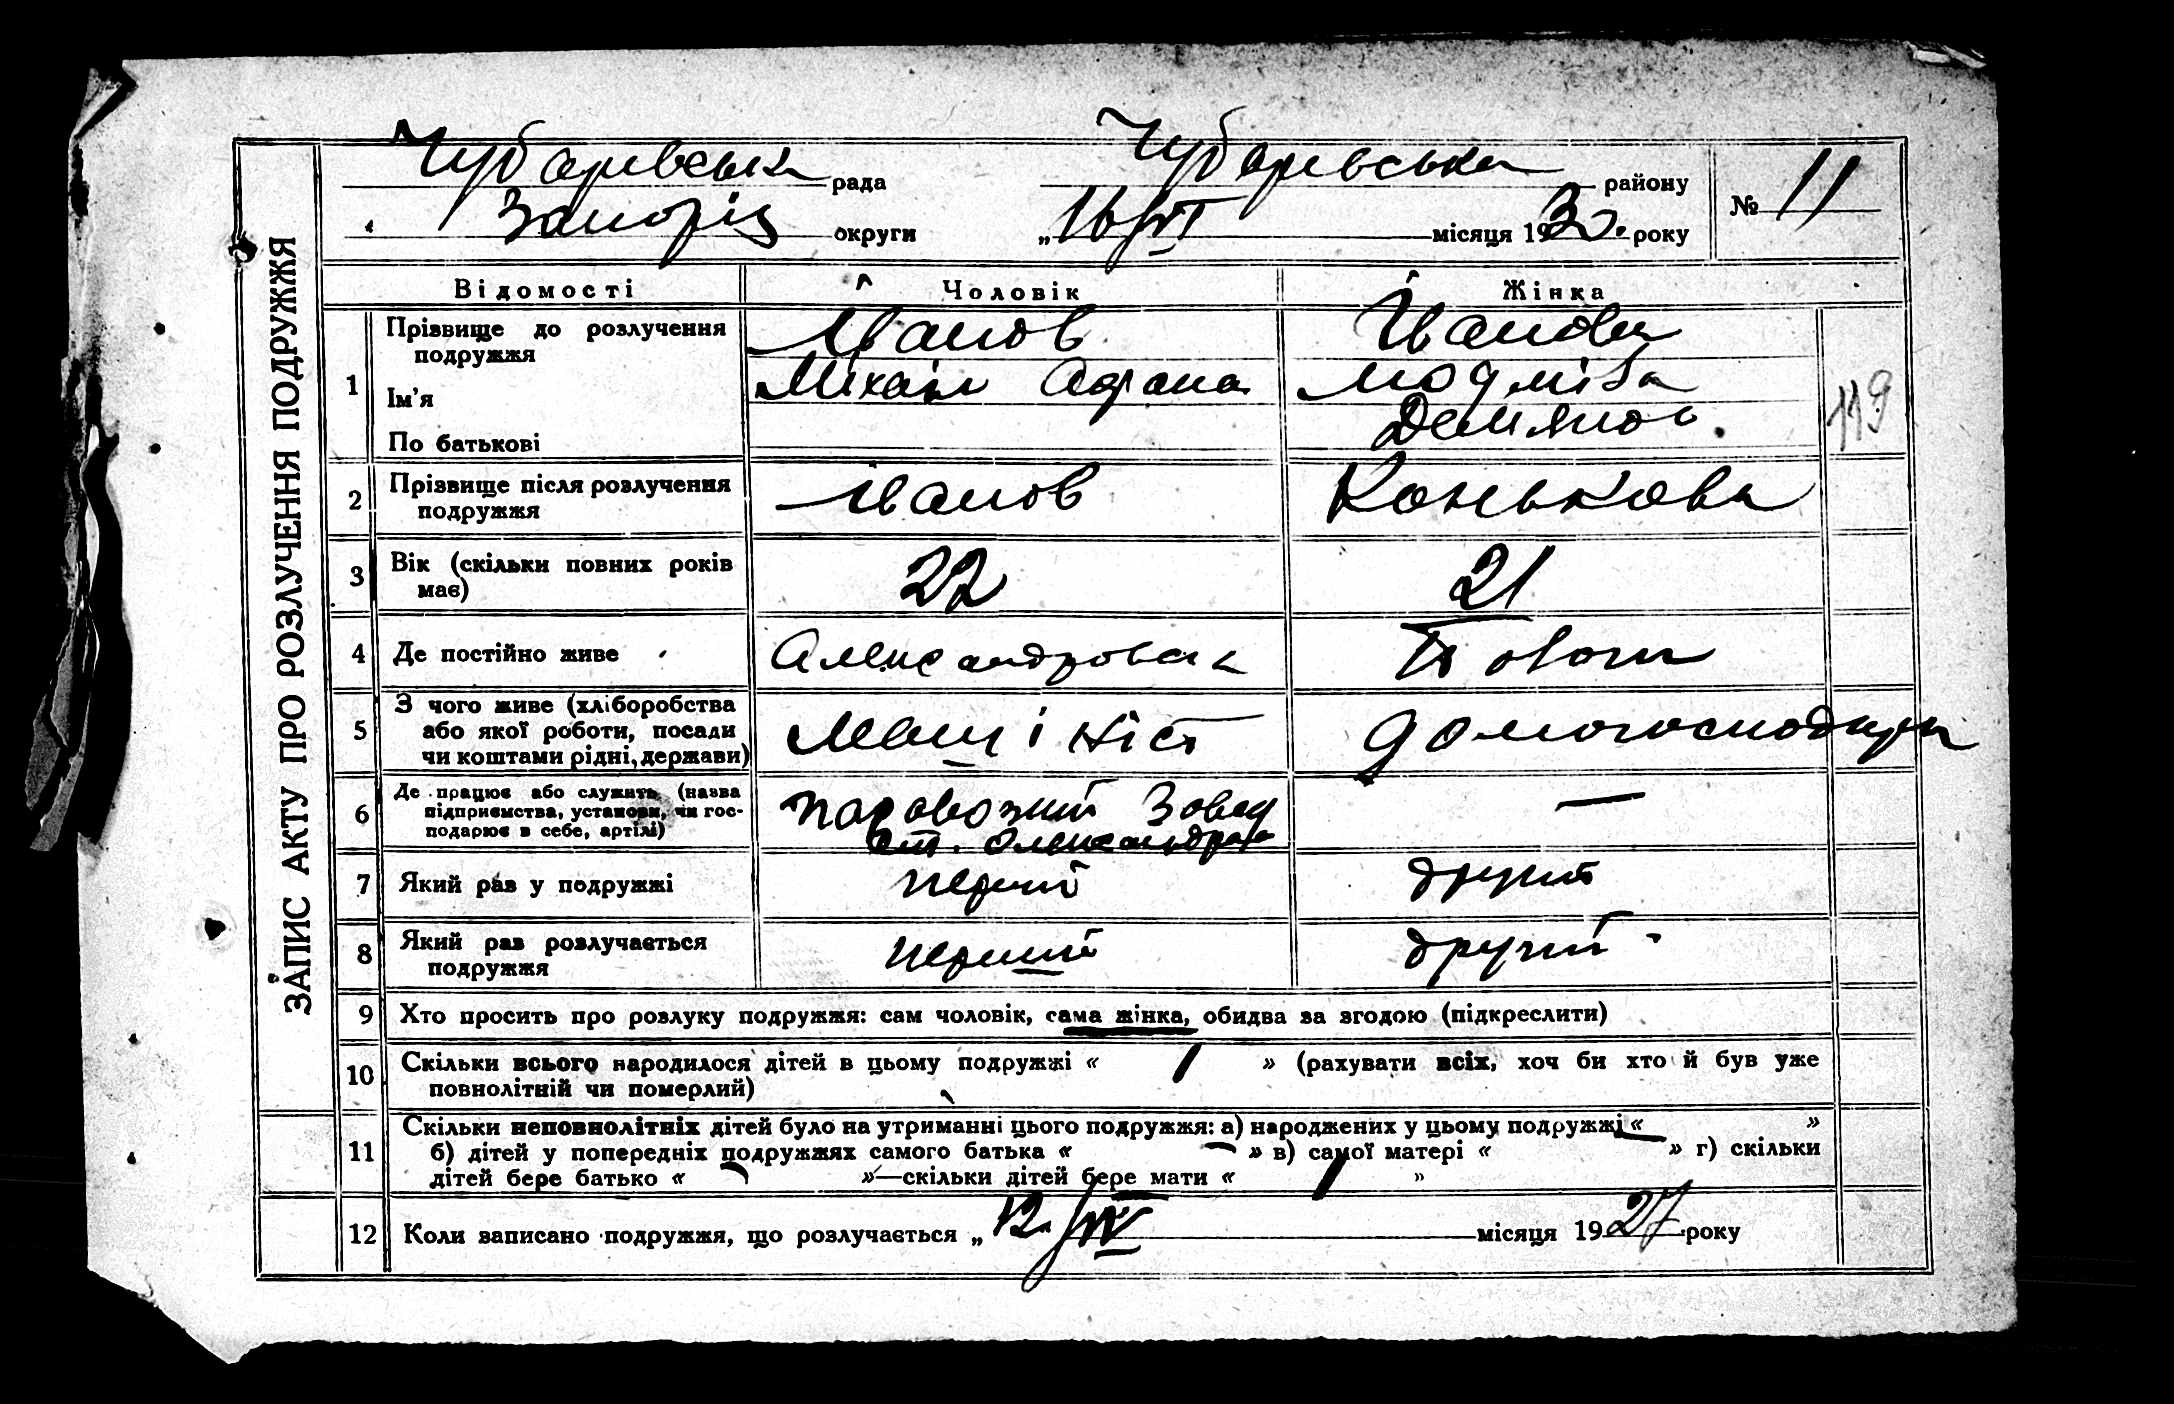 ЗАПИС АКТУ ПРО РОЗЛУЧЕННЯ ПОДРУЖЖЯ
Чубарівська рада Чубарівська району № 11
Запоріз округи „16/VI місяця 1930. року
Відомості Чоловік Жінка
1 Прізвище до розлучення подружжя Іванов Іванова
Ім'я Міхаіл Адрана Людміла
По батькові Демянов.
2 Прізвище після розлучення подружжя Іванов Конькова
119
3 Вік (скільки повних років має) 22 21
4 Де постійно живе Александровськ
5 З чого живе (хліборобства або якої роботи, посади чи коштами рідні, держави) Машініст домогосподирка
6 Де працює або служить (назва підприємства, установи, чи господарює в себе, артілі) паровозний Завод —
ст. Олександров
7 Який раз у подружжі перший другий
8 Який раз розлучається подружжя перший другий
9 Хто просить про розлуку подружжя: сам чоловік, сама жінка, обидва за згодою (підкреслити)
10 Скільки всього народилося дітей в цьому подружжі « 1 » (рахувати всіх, хоч би хто й був уже
повнолітній чи померлий)
11 Скільки неповнолітніх дітей було на утриманні цього подружжя: а) народжених у цьому подружжі « — »
б) дітей у попередніх подружжях самого батька « — » в) самої матері « — » г) скільки
дітей бере батько « — »—скільки дітей бере мати « 1 »
12 Коли записано подружжя, що розлучається „ 12/IV місяця 1927 року